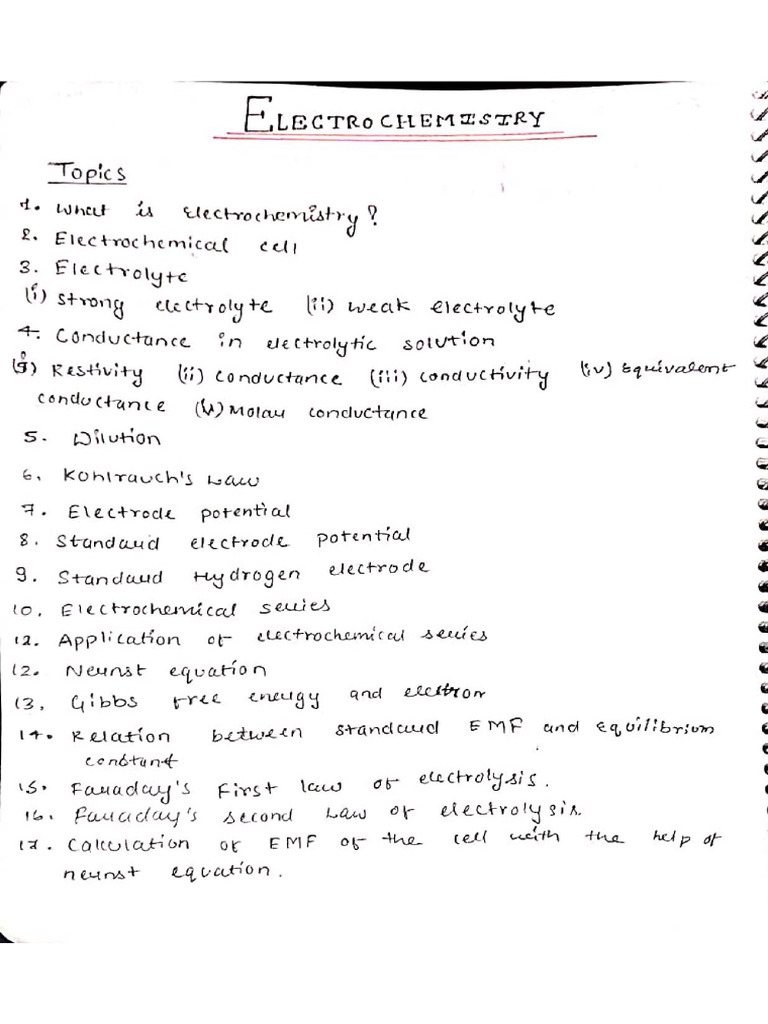 ELECTROCHEMISTRY
Topics
1. What is Electrochemistry?
2. Electrochemical cell
3. Electrolyte
(i) Strong electrolyte (ii) Weak Electrolyte
4. Conductance in electrolytic solution
(i) Restivity (ii) Conductance (iii) Conductivity (iv) Equivalent
conductance (v) Molar conductance
5. Dilution
6. Kohlrauch's Law
7. Electrode potential
8. Standard electrode potential
9. Standard Hydrogen electrode
10. Electrochemical series
12. Application of electrochemical series
12. Nernst equation
13. Gibbs free energy and electron
14. Relation between standard EMF and Equilibrium
constant
15. Faraday's First law of electrolysis.
16. Faraday's second Law of electrolysis.
17. Calculation of EMF of the cell with the help of
nernst equation.